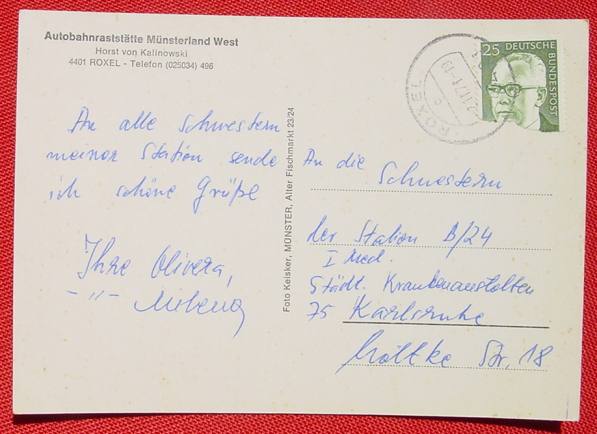 Autobahnraststätte Münsterland West
Horst von Kalinowski
4401 ROXEL - Telefon (025034) 496
An alle Schwestern
meiner Station sende
ich schöne Grüße
Ihre Olivera,
-"-
Foto Keisker, MÜNSTER, Alter Fischmarkt 23/24
ROXEL
25 DEUTSCHE
BUNDESPOST
An die Schwestern
der Station B/24
I Med.
Städt. Krankenanstalten
75 Karlsruhe
Moltke Str. 18